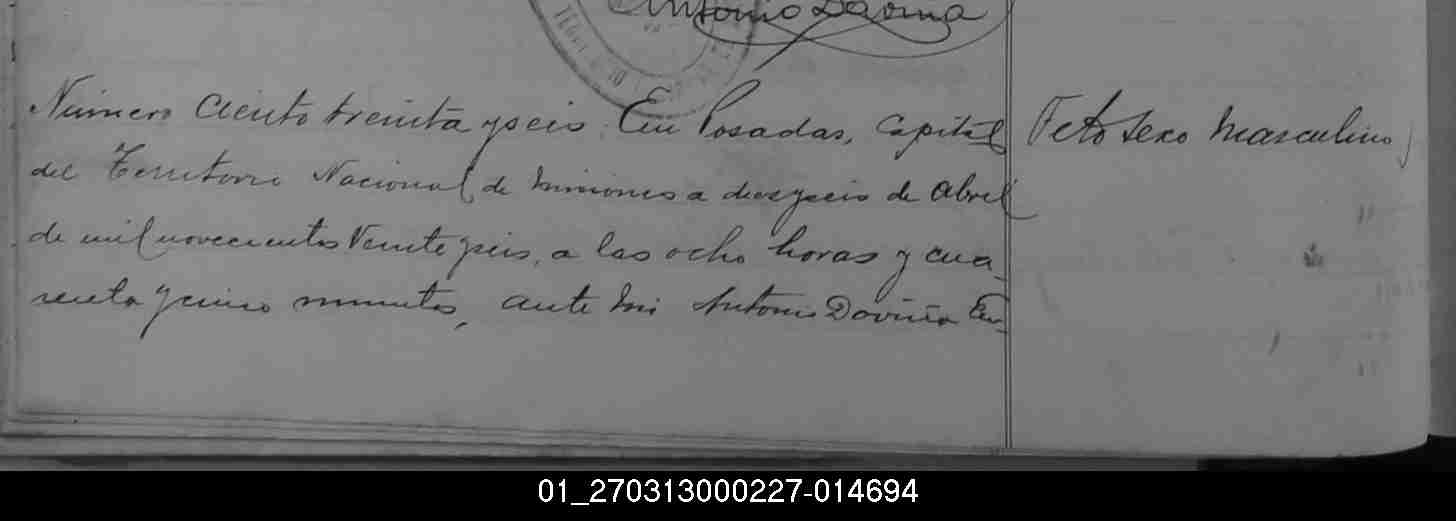 Antonio Daviña
Número ciento treinta y seis. En Posadas, Capital
del Territorio Nacional de Misiones a diez y seis de Abril
de mil novecientos veinte y seis, a las ocho horas y cua-
renta y cinco minutos, ante mi Antonio Daviña En-
Feto sexo masculino
01_270313000227-014694